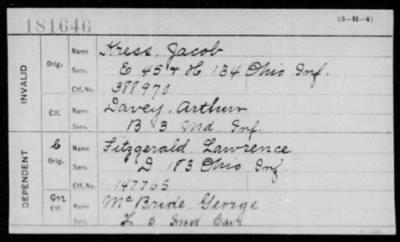 181646 (3-H-4)
INVALID
Orig. Name Kress, Jacob
Serv. E 45 & H 134 Ohio Inf.
Ctf. No. 388970
Ctf. Name Davey, Arthur
Serv. B 3 Md Inf.
DEPENDENT
C Orig. Name Fitzgerald Lawrence
Serv. D 183 Ohio Inf
Ctf. No. 147765
Ctf. Name McBride, George
L 5 Cav